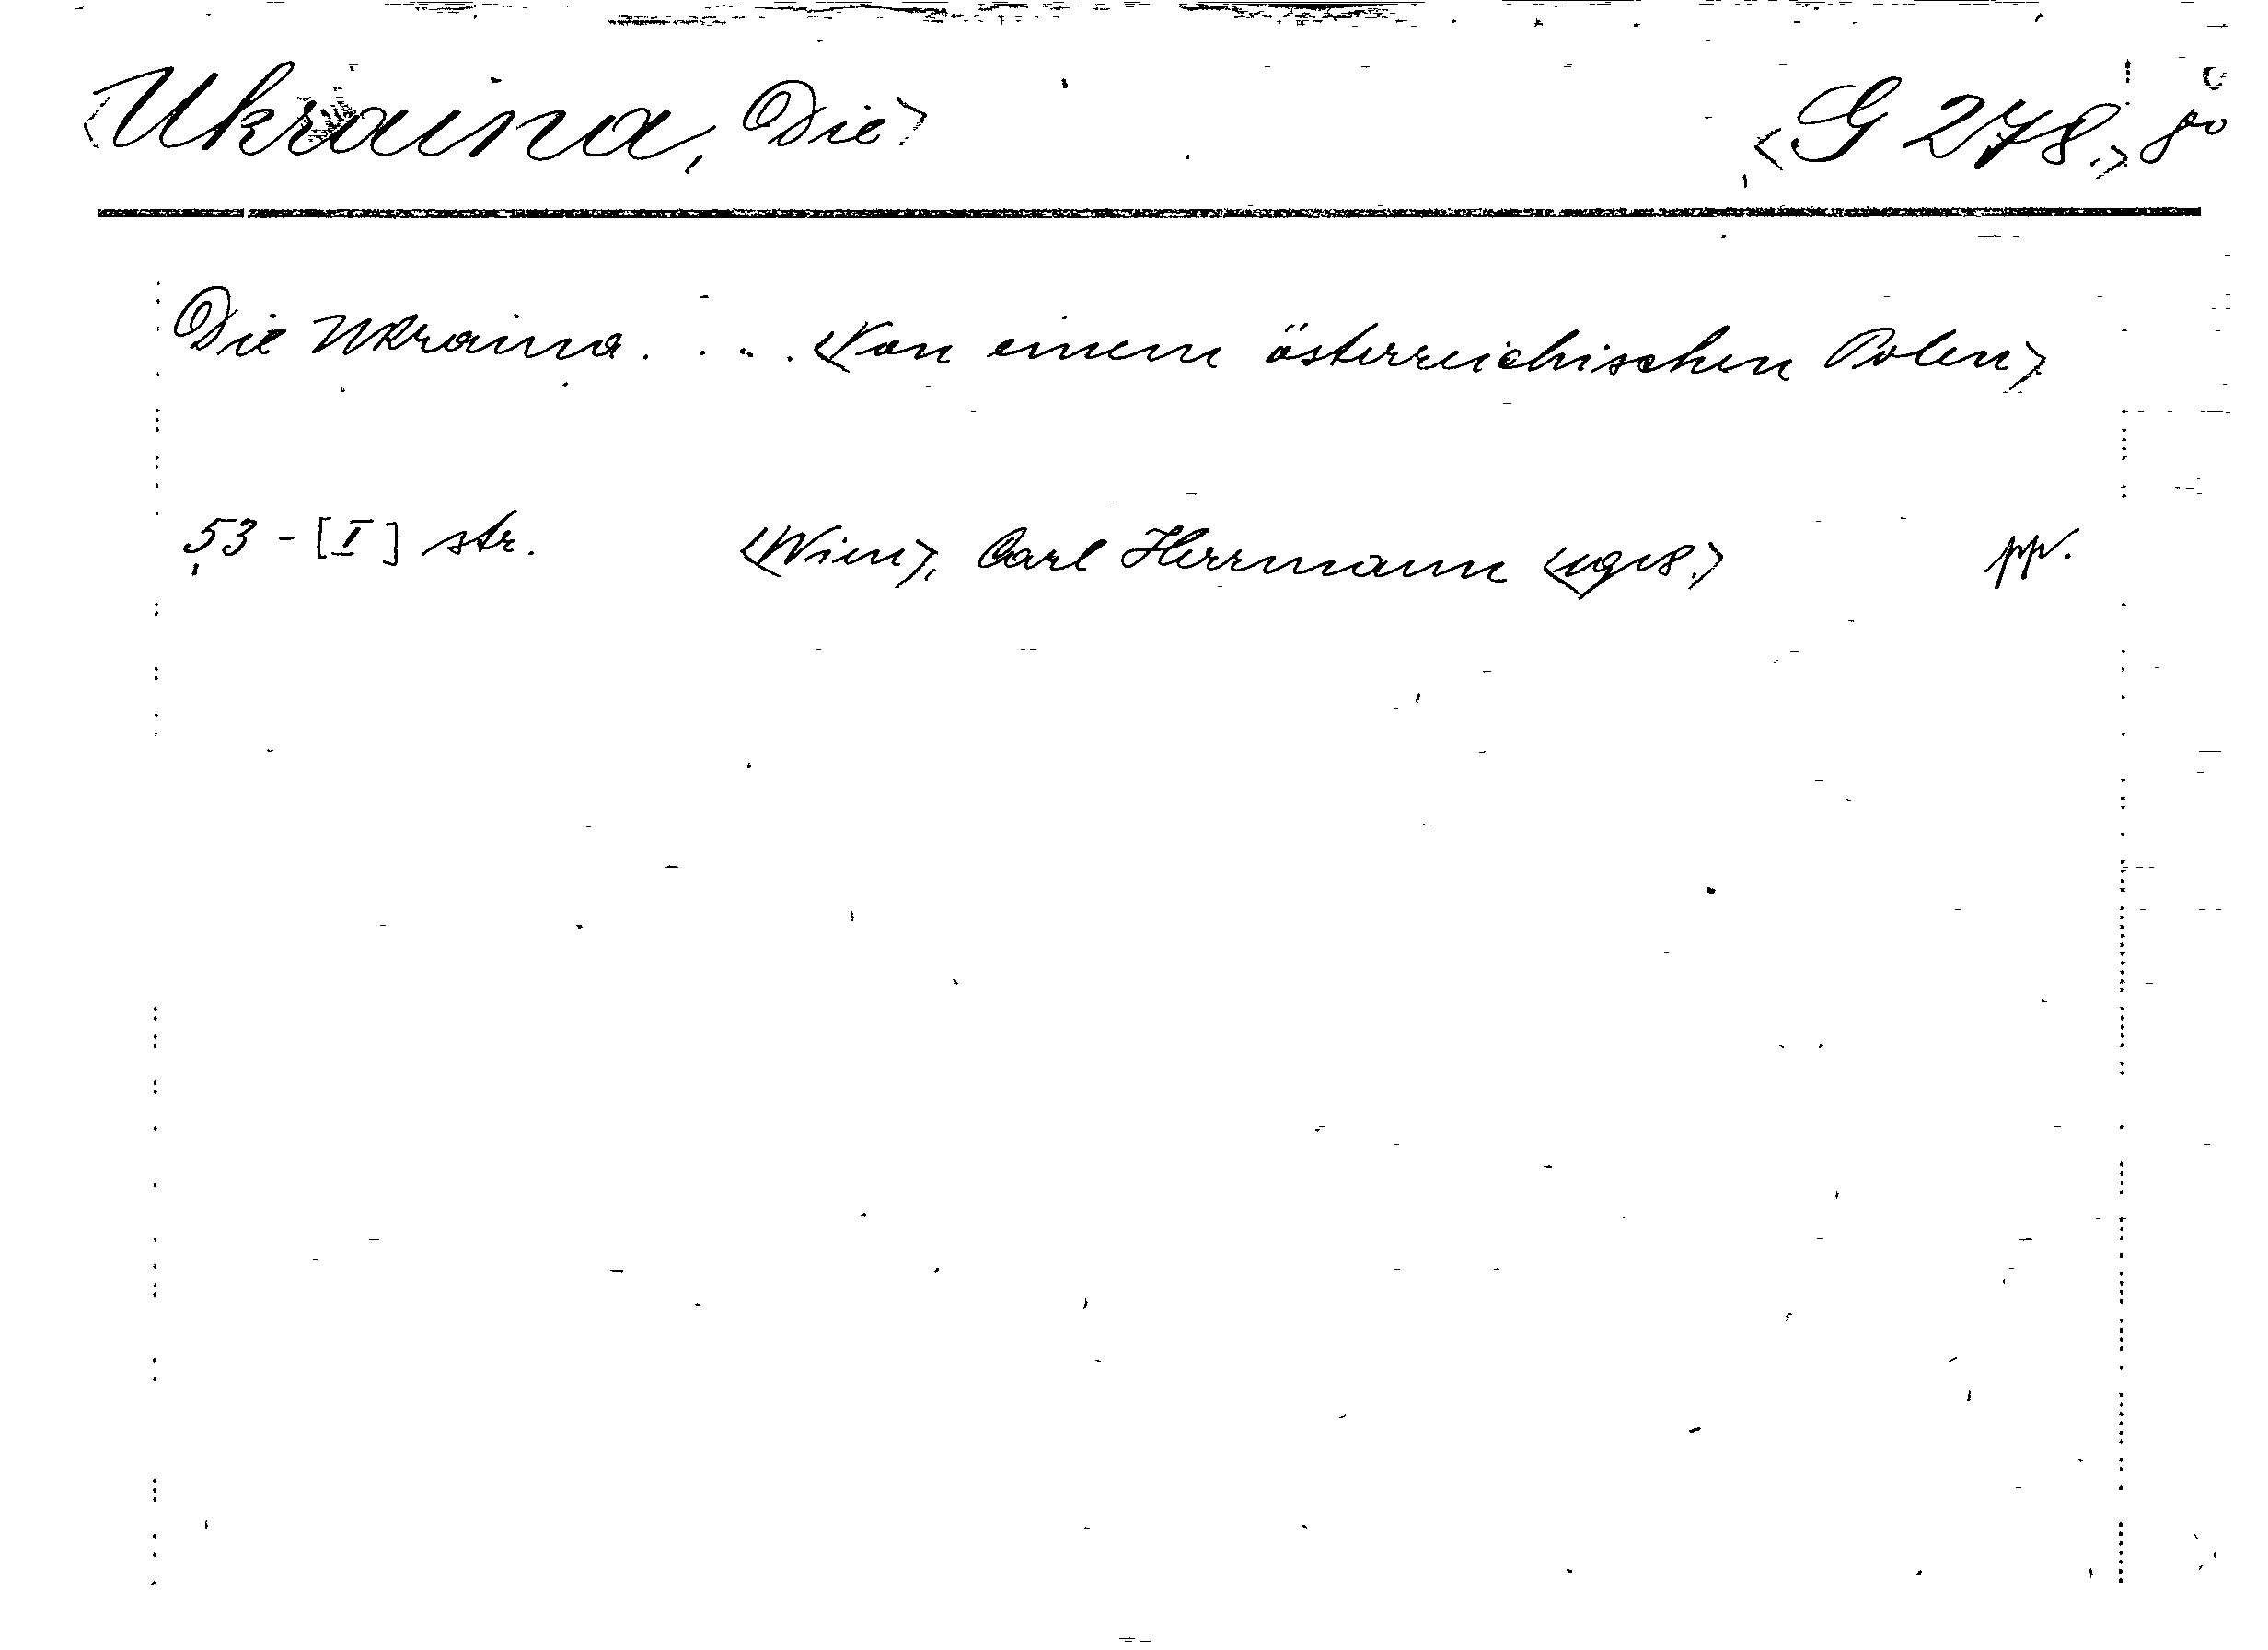 <Ukraina, Die> <G 278.> 8°
Die Ukraina. . . . <Von einem österreichischen Polen>
53 - [I] str. <Wien>, Carl Herrmann <1918.> pp.